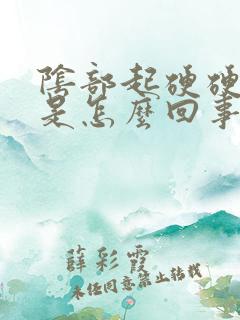 陰部起硬硬
是怎麼回事
薛彩霞
未经同意禁止转载